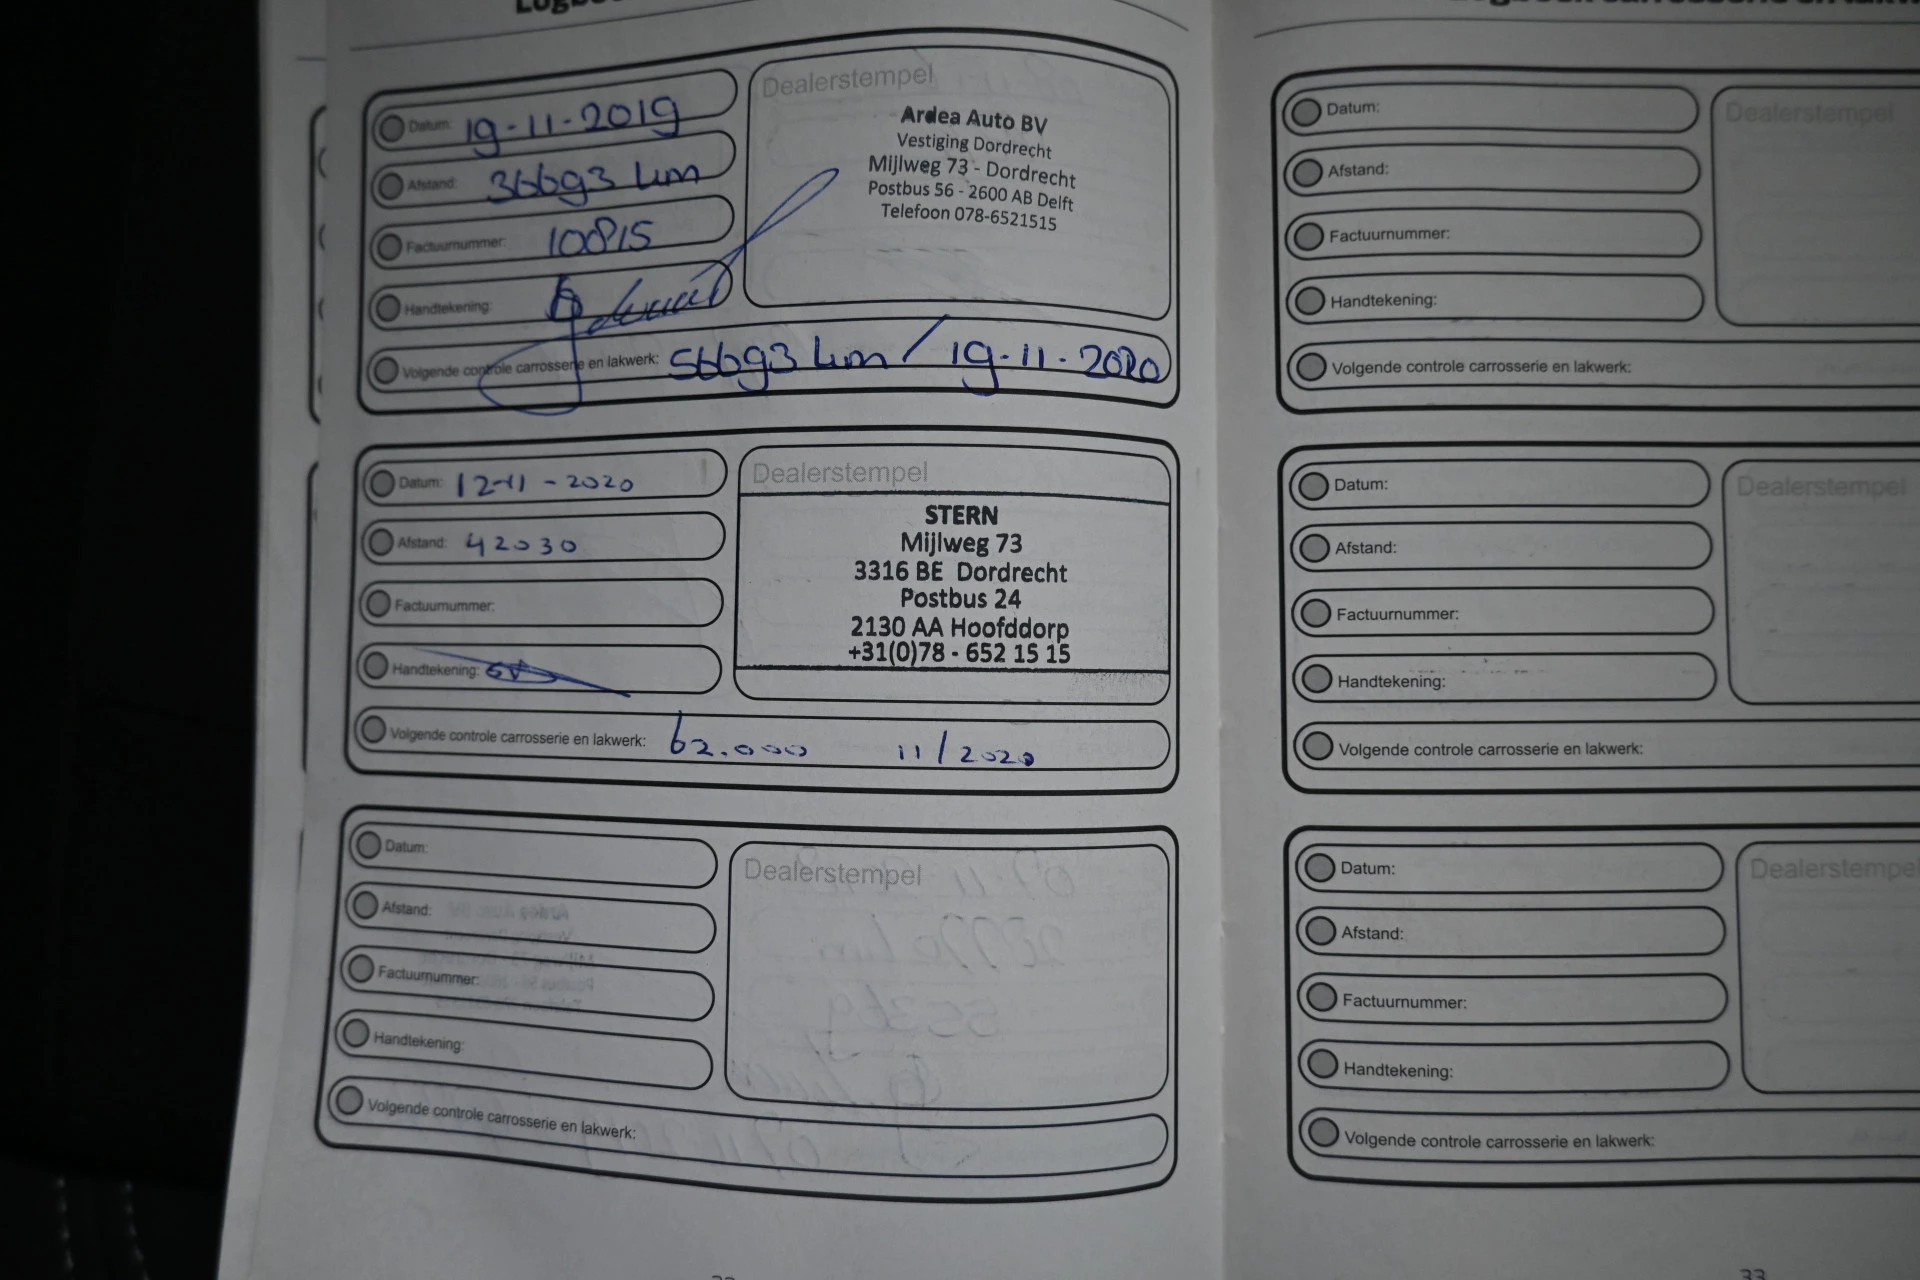 Datum: 19-11-2019
Afstand: 36693 km
Factuurnummer: 10815
Handtekening:
Volgende controle carrosserie en lakwerk: 56693 km / 19-11-2020
Dealerstempel
Ardea Auto BV
Vestiging Dordrecht
Mijlweg 73 - Dordrecht
Postbus 56 - 2600 AB Delft
Telefoon 078-6521515
Datum: 12-11-2020
Afstand: 42030
Factuurnummer:
Handtekening:
Volgende controle carrosserie en lakwerk: 62.000 11/2020
Dealerstempel
STERN
Mijlweg 73
3316 BE Dordrecht
Postbus 24
2130 AA Hoofddorp
+31(0)78 - 652 15 15
Datum:
Afstand:
Factuurnummer:
Handtekening:
Volgende controle carrosserie en lakwerk:
Dealerstempel
Datum:
Afstand:
Factuurnummer:
Handtekening:
Volgende controle carrosserie en lakwerk:
Dealerstempel
Datum:
Afstand:
Factuurnummer:
Handtekening:
Volgende controle carrosserie en lakwerk:
Dealerstempel
Datum:
Afstand:
Factuurnummer:
Handtekening:
Volgende controle carrosserie en lakwerk:
Dealerstempel
33